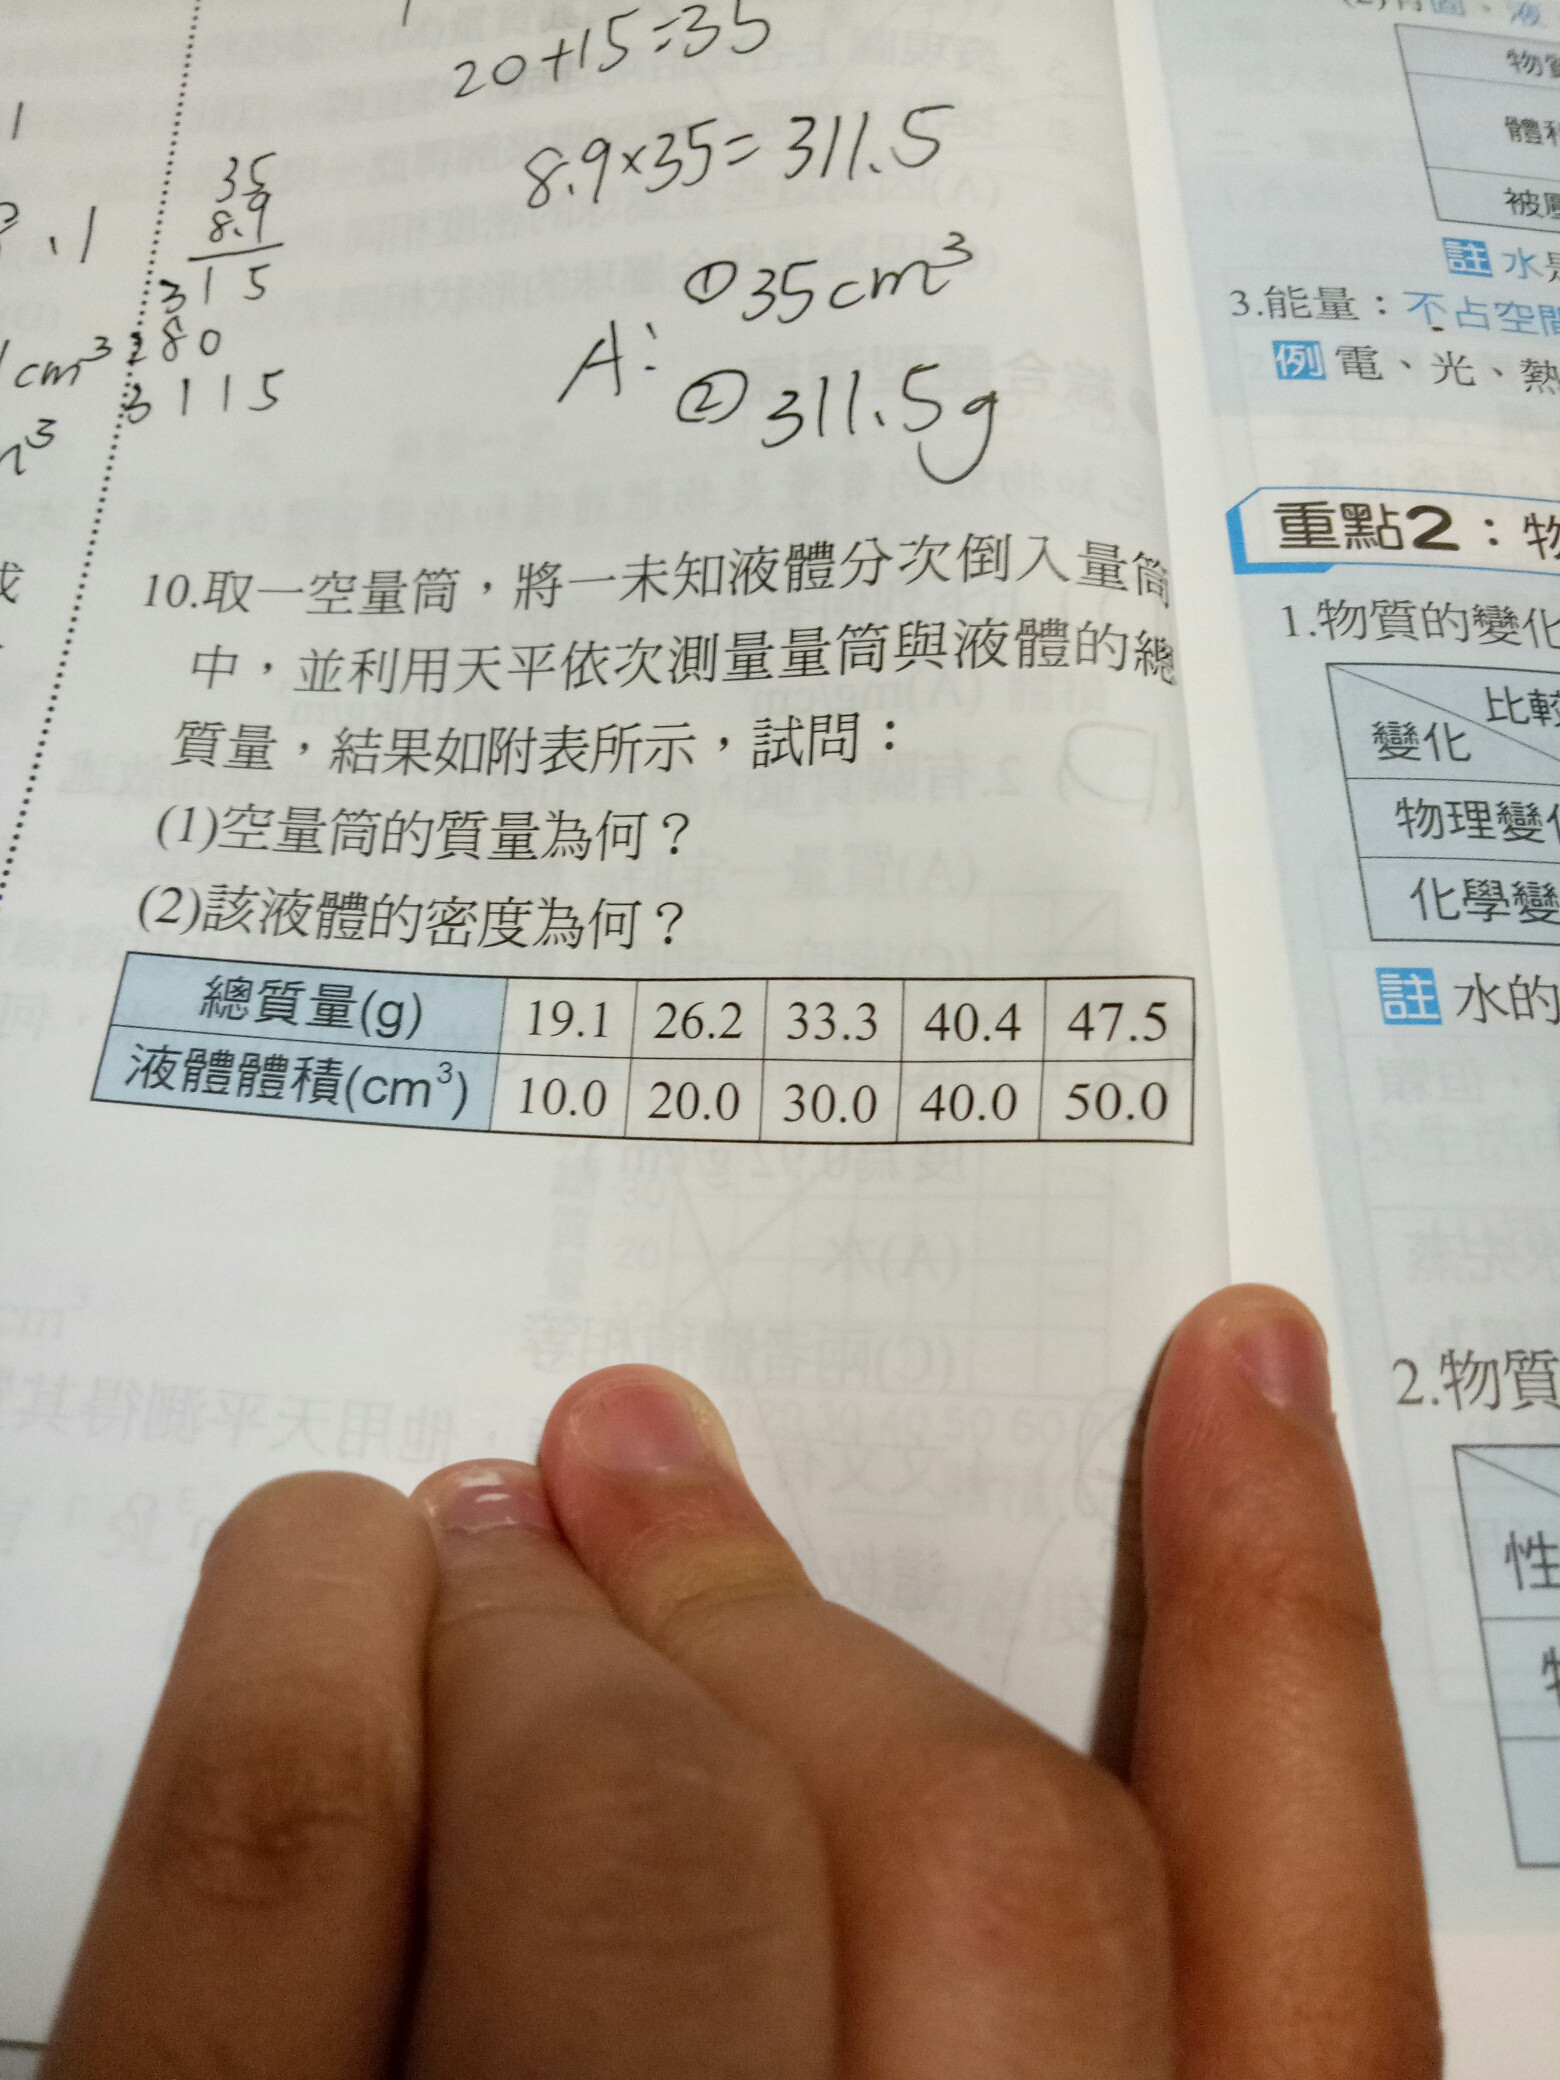 20+15=35
8.9×35=311.5
35
8.9
315
280
3115
A:
①35cm³
②311.5g
cm³
10.取一空量筒，將一未知液體分次倒入量筒
中，並利用天平依次測量量筒與液體的總
質量，結果如附表所示，試問：
(1)空量筒的質量為何？
(2)該液體的密度為何？
總質量(g) 19.1 26.2 33.3 40.4 47.5
液體體積(cm³) 10.0 20.0 30.0 40.0 50.0
註 水
3.能量：不占空間
例 電、光、熱
重點2：物
1.物質的變化
比較
變化
物理變化
化學變
註 水的
2.物質
性